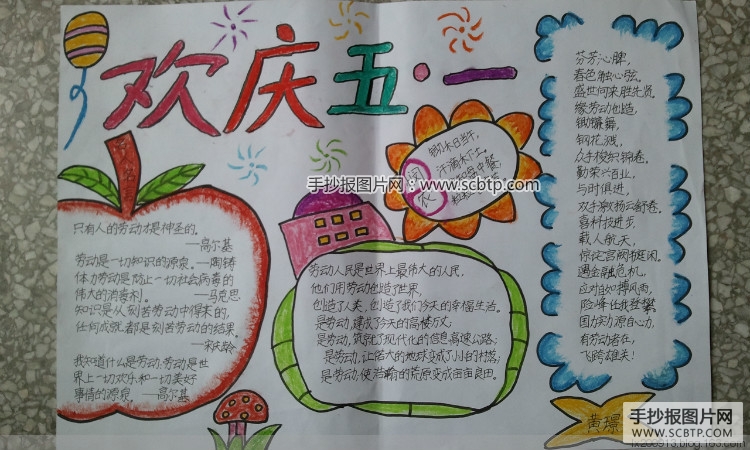 欢庆五·一
只有人的劳动才是神圣的。
——高尔基
劳动是一切知识的源泉。——陶铸
体力劳动是防止一切社会病毒的
伟大的消毒剂。——马克思
知识是从刻苦劳动中得来的,
任何成就都是刻苦劳动的结果。
——宋庆龄
我知道什么是劳动:劳动是世
界上一切欢乐和一切美好
事情的源泉。——高尔基
悯农
锄禾日当午,
汗滴禾下土。
手抄报图片网:www.scbtp.com
劳动人民是世界上最伟大的人民,
他们用劳动创造了世界,
创造了人类,创造了我们今天的幸福生活。
是劳动,建设了今天的高楼大厦;
是劳动,筑就了现代化的信息高速公路;
是劳动,让偌大的地球变成了小小的村落;
是劳动,使浩瀚的荒原变成亩亩良田。
芬芳沁脾,
春色触心弦。
盛世何来胜先贤。
缘劳动创造,
锄镰舞,
钢花溅,
众手梭织锦卷。
勤荣百业,
与时俱进,
双手激扬云舒卷。
喜科技进步,
载人航天,
惊诧宫阙桂闲。
遇金融危机,
应对自如搏风雨,
险峰任我登攀。
国力实力源自心力,
有劳动者在,
飞跨雄关!
黄璟
手抄报图片网
SCBTP.COM